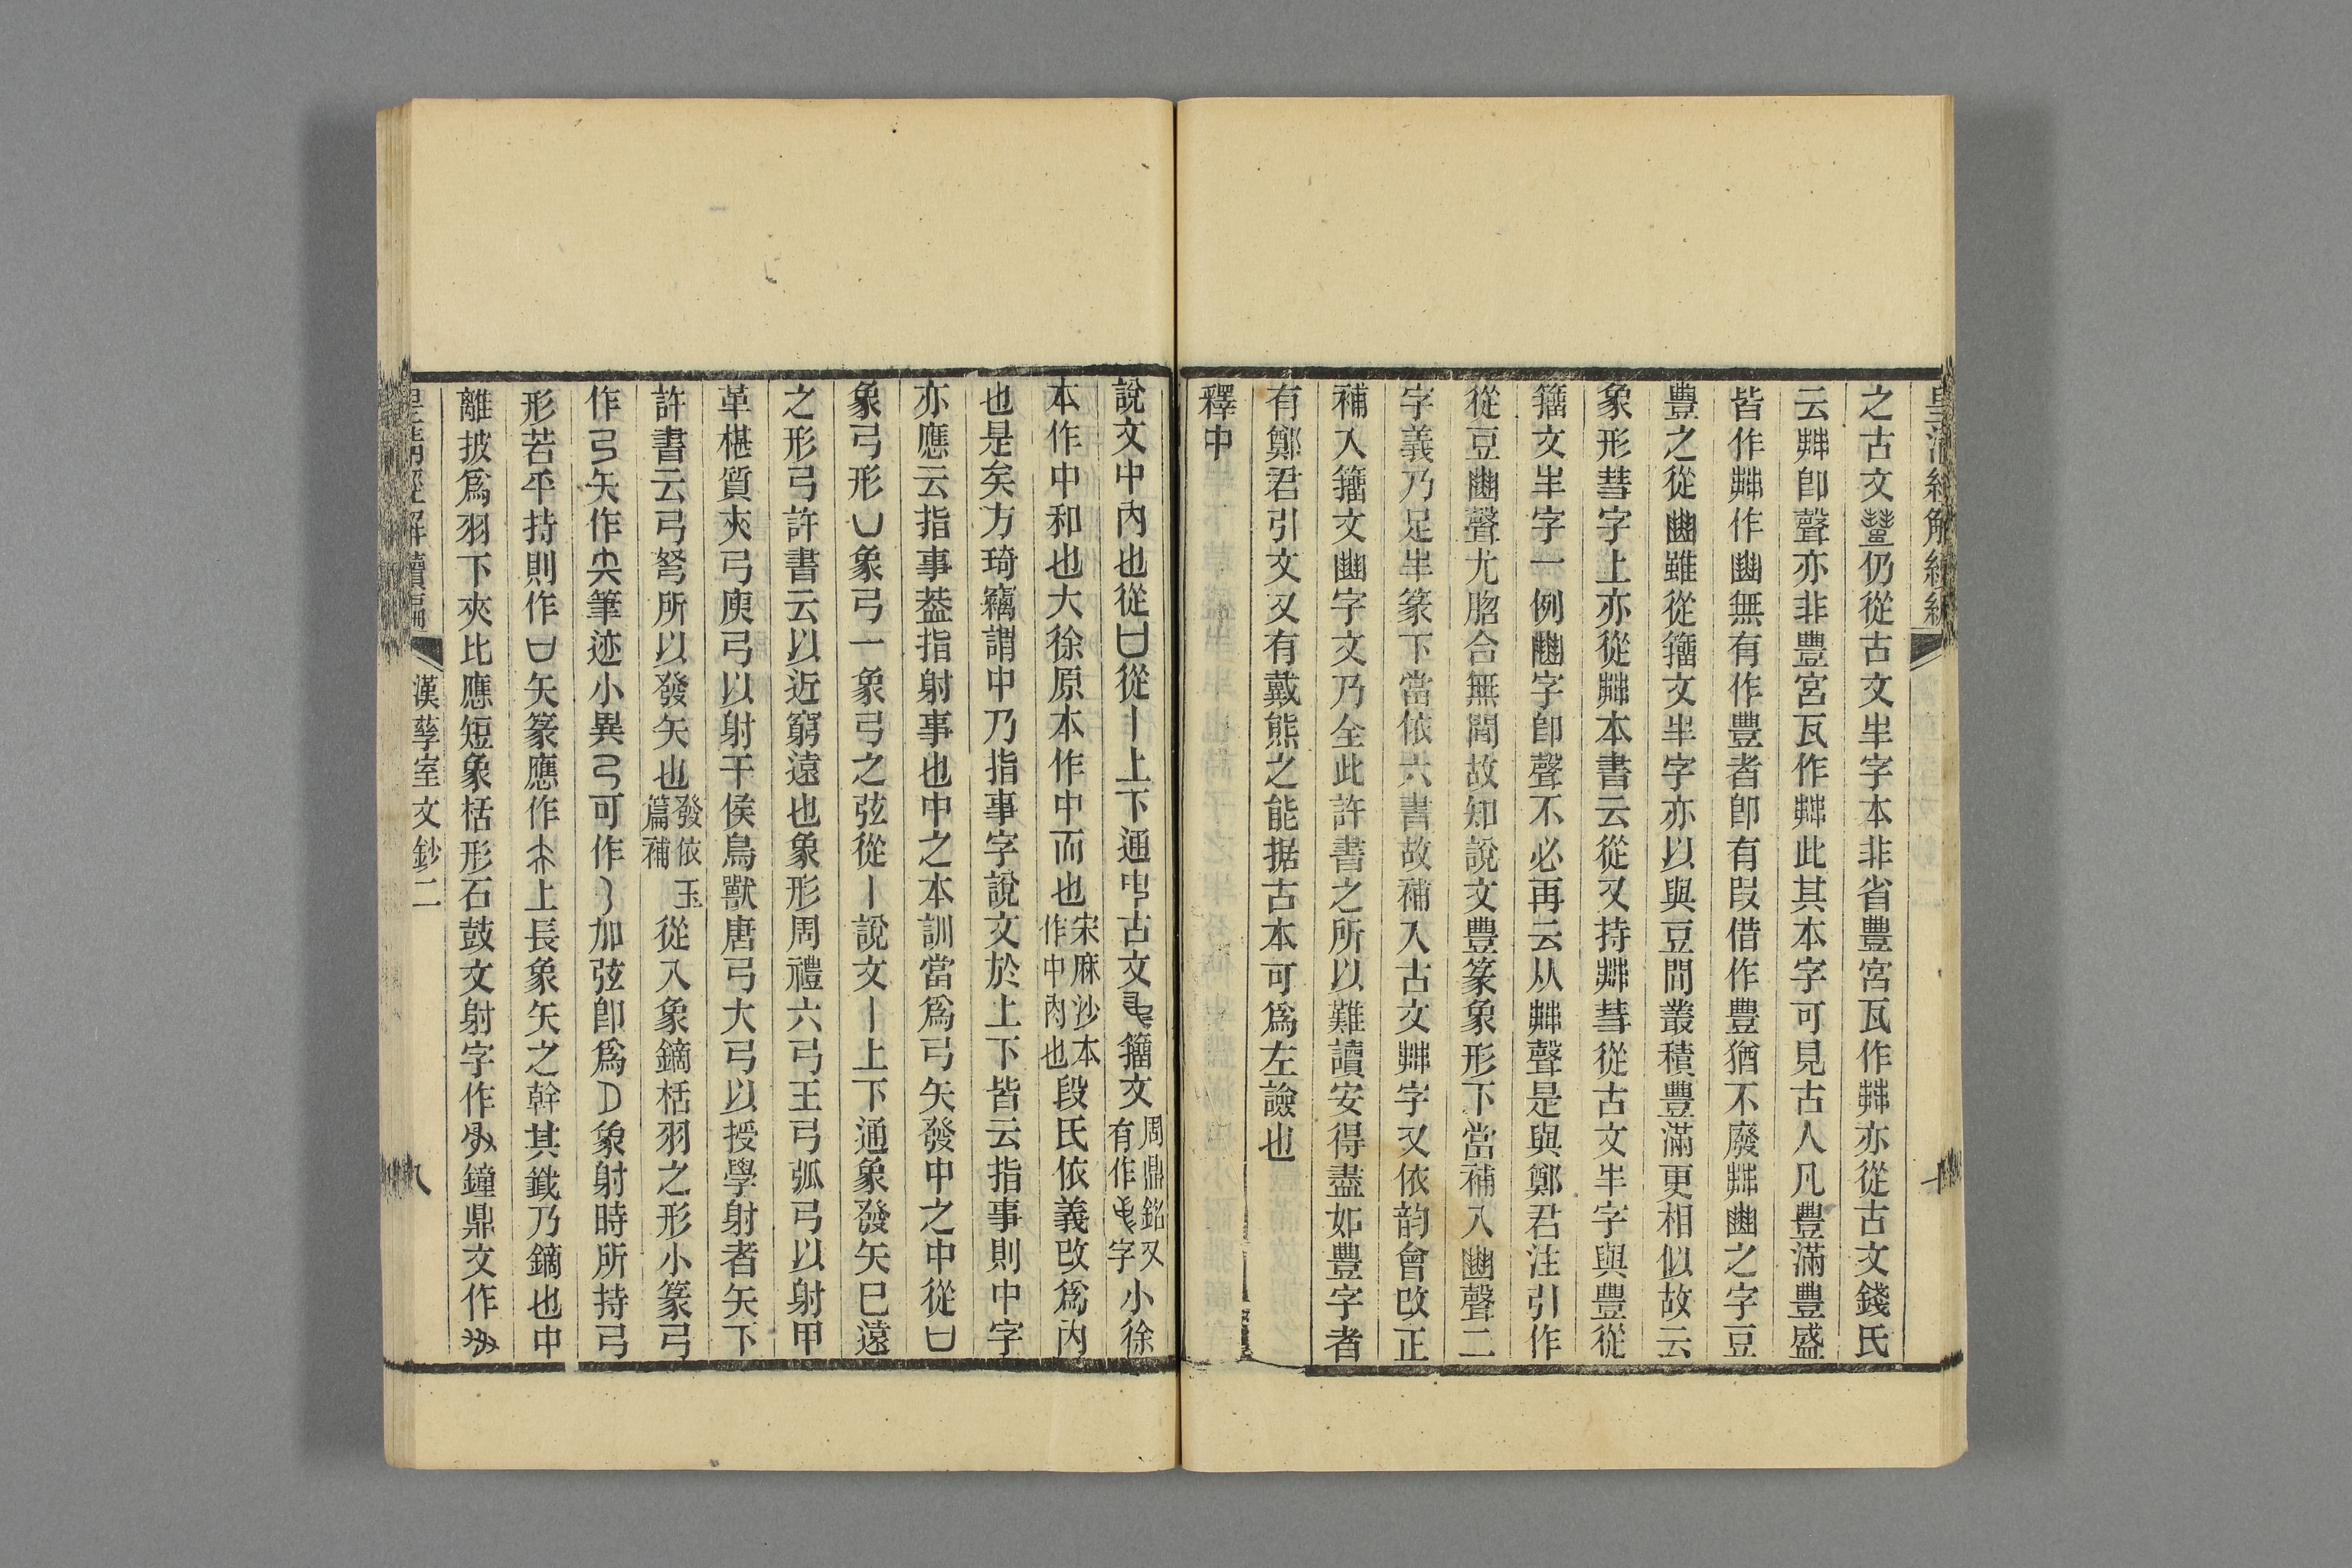 皇清經解續編
之古文𧯮仍從古文丰字本非省豐宮瓦作𠁳亦從古文錢氏
云𠁳卽聲亦非豐宮瓦作𠁳此其本字可見古人凡豐滿豐盛
皆作𠁳作豳無有作豐者卽有叚借作豐猶不廢𠁳豳之字豆
豐之從豳雖從籀文丰字亦以與豆間叢積豐滿更相似故云
象形彗字上亦從𠁳本書云從又持𠁳彗從古文丰字與豐從
籀文丰字一例豳字卽聲不必再云从𠁳聲是與鄭君注引作
從豆豳聲尤脗合無閒故知說文豐篆象形下當補入豳聲二
字義乃足丰篆下當依六書故補入古文𠁳字又依韵會改正
補入籀文豳字文乃全此許書之所以難讀安得盡如豐字者
有鄭君引文又有戴熊之能据古本可爲左譣也
釋中
說文中內也從凵從丨上下通𠁧古文𠁩籀文周鼎銘又有作字小徐
本作中和也大徐原本作中而也宋麻沙本作中肉也段氏依義改爲內
也是矣方琦竊謂中乃指事字說文於上下皆云指事則中字
亦應云指事葢指射事也中之本訓當爲弓矢發中之中從凵
象弓形凵象弓一象弓之弦從丨說文丨上下通象發矢巳遠
之形弓許書云以近窮遠也象形周禮六弓王弓弧弓以射甲
革椹質夾弓庾弓以射干侯鳥獸唐弓大弓以授學射者矢下
許書云弓弩所以發矢也發依玉篇補從入象鏑栝羽之形小篆弓
作弓矢作筆迹小異弓可作加弦卽爲象射時所持弓
形若平持則作凵矢篆應作上長象矢之幹其鐖乃鏑也中
離披爲羽下夾比應短象栝形石鼓文射字作鐘鼎文作
皇清經解續編 漢孳室文鈔二 八